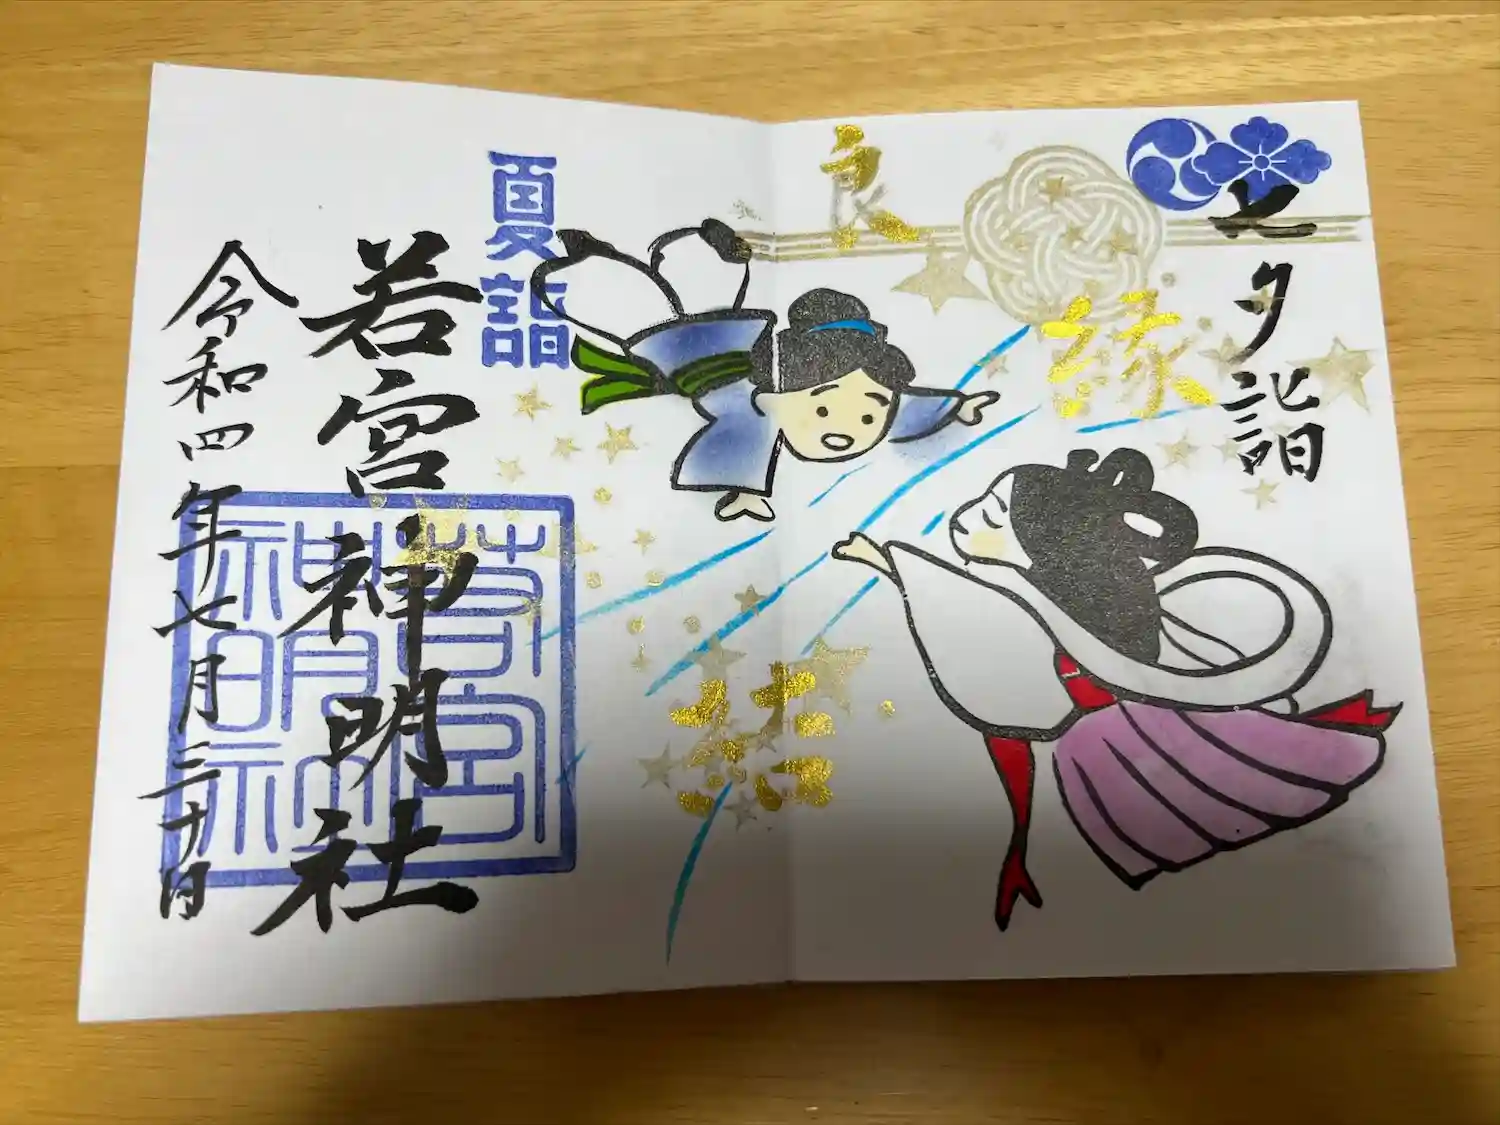 七夕詣
良
縁
結
夏詣
若宮神明社
若宮神明社
令和四年七月三十日